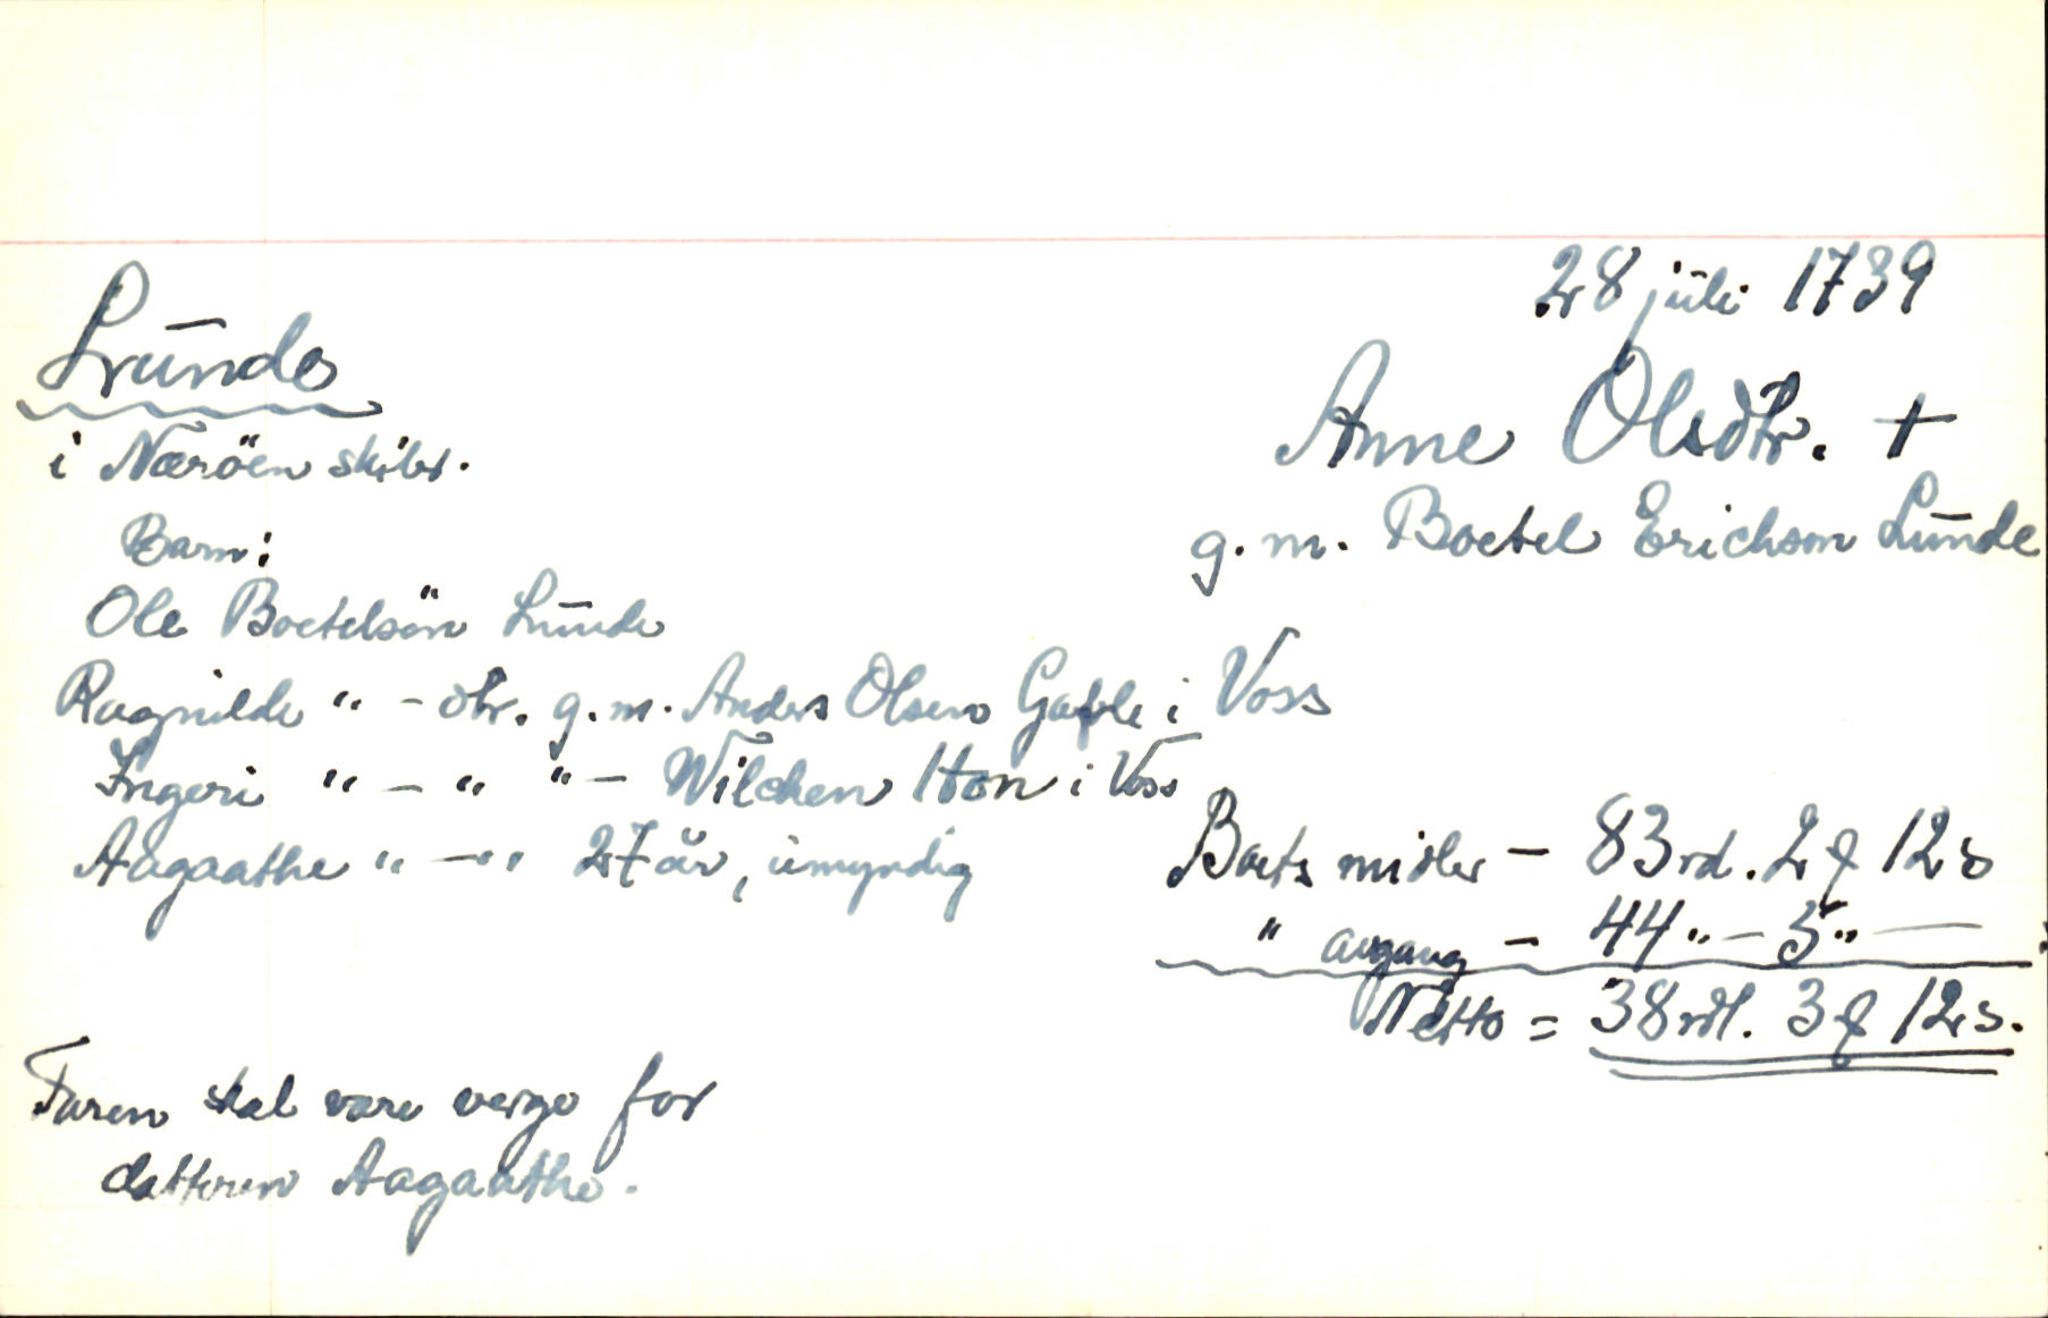 28 juli 1739
Lunde
i Næröen skibr.
Anne Olsdtr. +
g.m. Boetel Erichson Lunde
Barn:
Ole Boetelsön Lunde
Ragnilde " - dtr. g.m. Anders Olsen i Voss
Ingeri " - " " - Wilchen i Voss
Aagaathe " - " 27 år, umyndig
Boets midler - 83 rd. 2 f 12 s
" avgang - 44 " - 5 " —
Netto = 38 rdl. 3 f 12 s.
Faren skal være verge for
datteren Aagaathe.